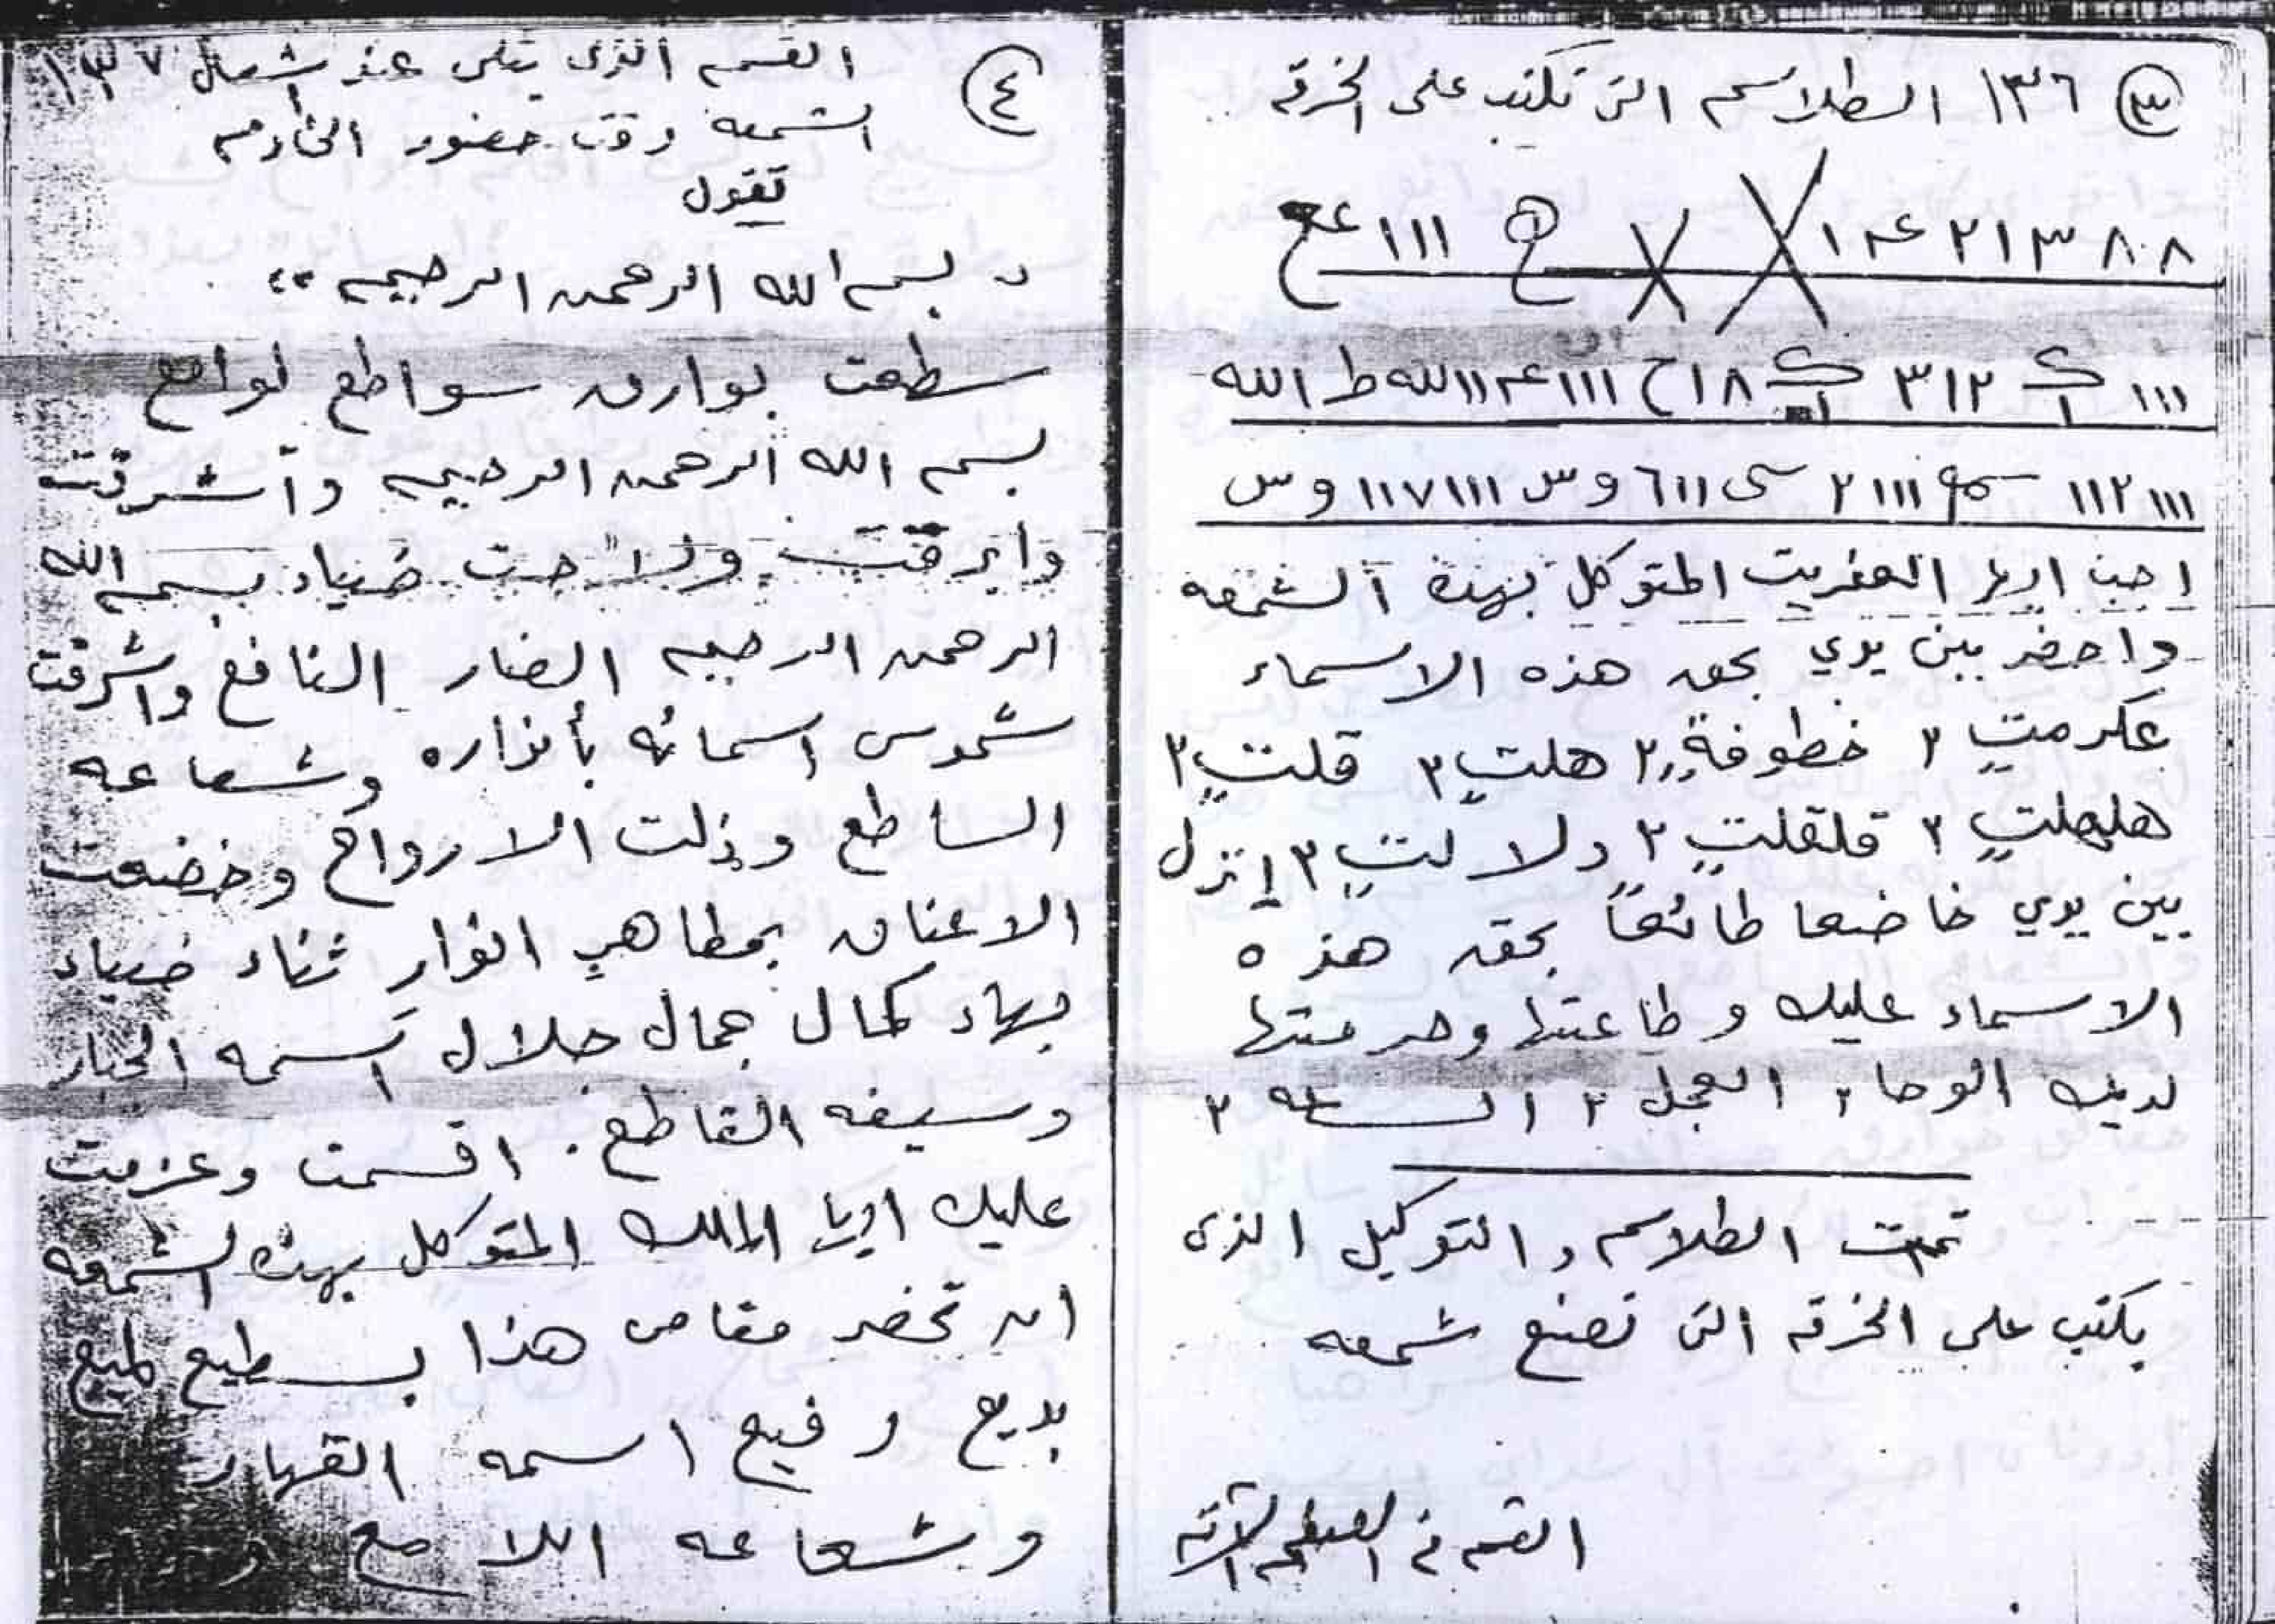 ٣ ١٣٦ الطلاسم التى تكتب على الخرقه
٨٠٨ ٣ ١ ٢ ٤ ١ ١١١ عع
١١١ ك ١ ٣١٢ ك ١ ٨ ١ ح ١١١ ١١ لله ط الله
١١١ ١١٢ ٢١١١ سى ٦١١ و س ١١٧١١١ و س
اجب ايها العفريت المتوكل بهذة الشمعه
واحضر بين يدي بحق هذه الاسماء
عكرمتٍ ٢ خطوفةٍ ٢ هلتٍ ٢ قلتٍ ٢
هلهلتٍ ٢ قلقلتٍ ٢ دلا لتٍ ٢ إنزل
بين يدي خاضعا طائعاً بحق هذه
الاسماء عليك وطاعتها وحرمتها
لديك الوحا ٢ العجل ٢ الساعه ٢
تمت الطلاسم والتوكيل الذى
يكتب على الخرقه التى تصنع شمعه
القسم فى الصفحه الآتيه
٤ القسم الذى يتلى عند اشعال ١٣٧
الشمعه وقت حضور الخادم
تقول
" بسم الله الرحمن الرحيم "
سطعت بوارق سواطع لوامع
بسم الله الرحمن الرحيم وأشرقت
وابرقت ولاحت ضياء بسم الله
الرحمن الرحيم الضار النافع واشرقت
شموس اسمائه بأنواره وشعاعه
الساطع وذلت الارواح وخضعت
الاعناق بمظاهرِ انوارِ ثناء ضياء
بهاء كمال جمال جلال اسمه الجبار
وسيفه القاطع. اقسمت وعزمت
عليك ايها الملك المتوكل بهذه الشمعه
ان تحضر مقامى هذا بسطيع لميع
بديع رفيع اسمه القهار
وشعاعه اللامع